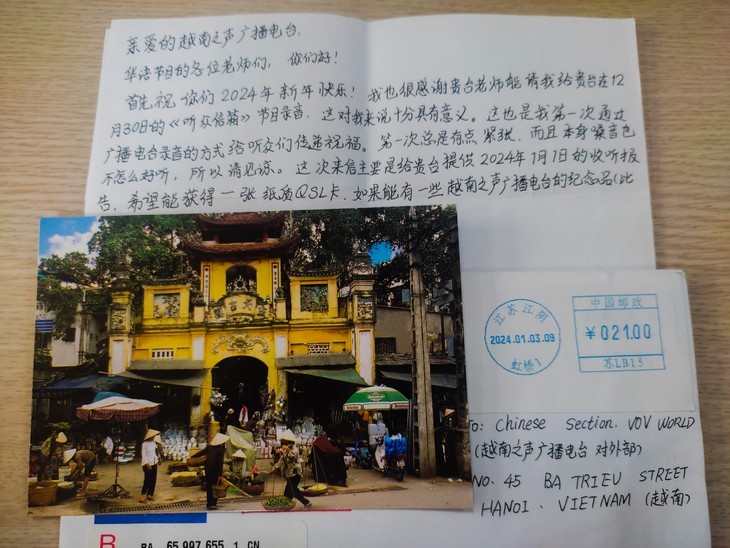 亲爱的越南之声广播电台：
华语节目的各位老师们，你们好！
首先祝你们2024年新年快乐！我也很感谢贵台老师能请我给贵台在12
月30日的《听众信箱》节目录音，这对我来说十分具有意义。这也是我第一次通过
广播电台录音的方式给听众们传递祝福。第一次总是有点紧张，而且本身嗓音也
不怎么好听，所以请见谅。这次来信主要是给贵台提供2024年1月1日的收听报
告，希望能获得一张纸质QSL卡，如果能有一些越南之声广播电台的纪念品（比
江苏江阴
2024.01.03.09
虹桥1
中国邮政
¥021.00
苏LB15
To: Chinese Section. VOV WORLD
（越南之声广播电台 对外部）
NO. 45 BA TRIEU STREET
HANOI、VIETNAM（越南）
R RA 65 997 655 1 CN